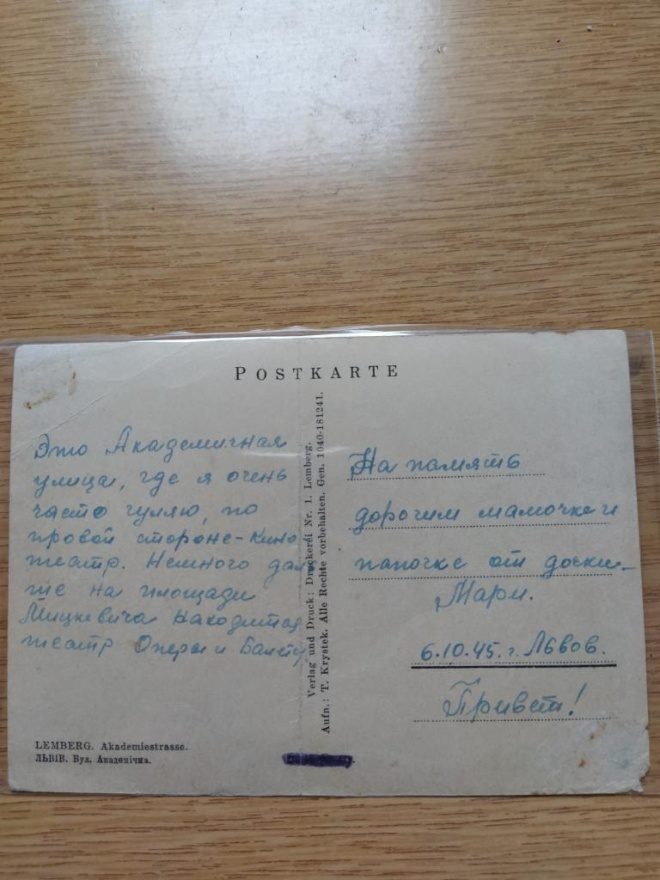 POSTKARTE
Это Академичная
улица, где я очень
часто гуляю, по
правой стороне-кино
театр. Немного даль
ше на площади
Мицкевича находится
театр Оперы и Балету
LEMBERG. Akademiestrasse.
ЛЬВІВ. Вул. Академічна.
Verlag und Druck: Druckerei Nr. 1. Lemberg.
Aufn.: T. Krystek. Alle Rechte vorbehalten. Gen. 1040-181241.
На память
дорогим мамочке и
папочке от дочки
Мари.
6.10.45. г. Львов.
Привет!